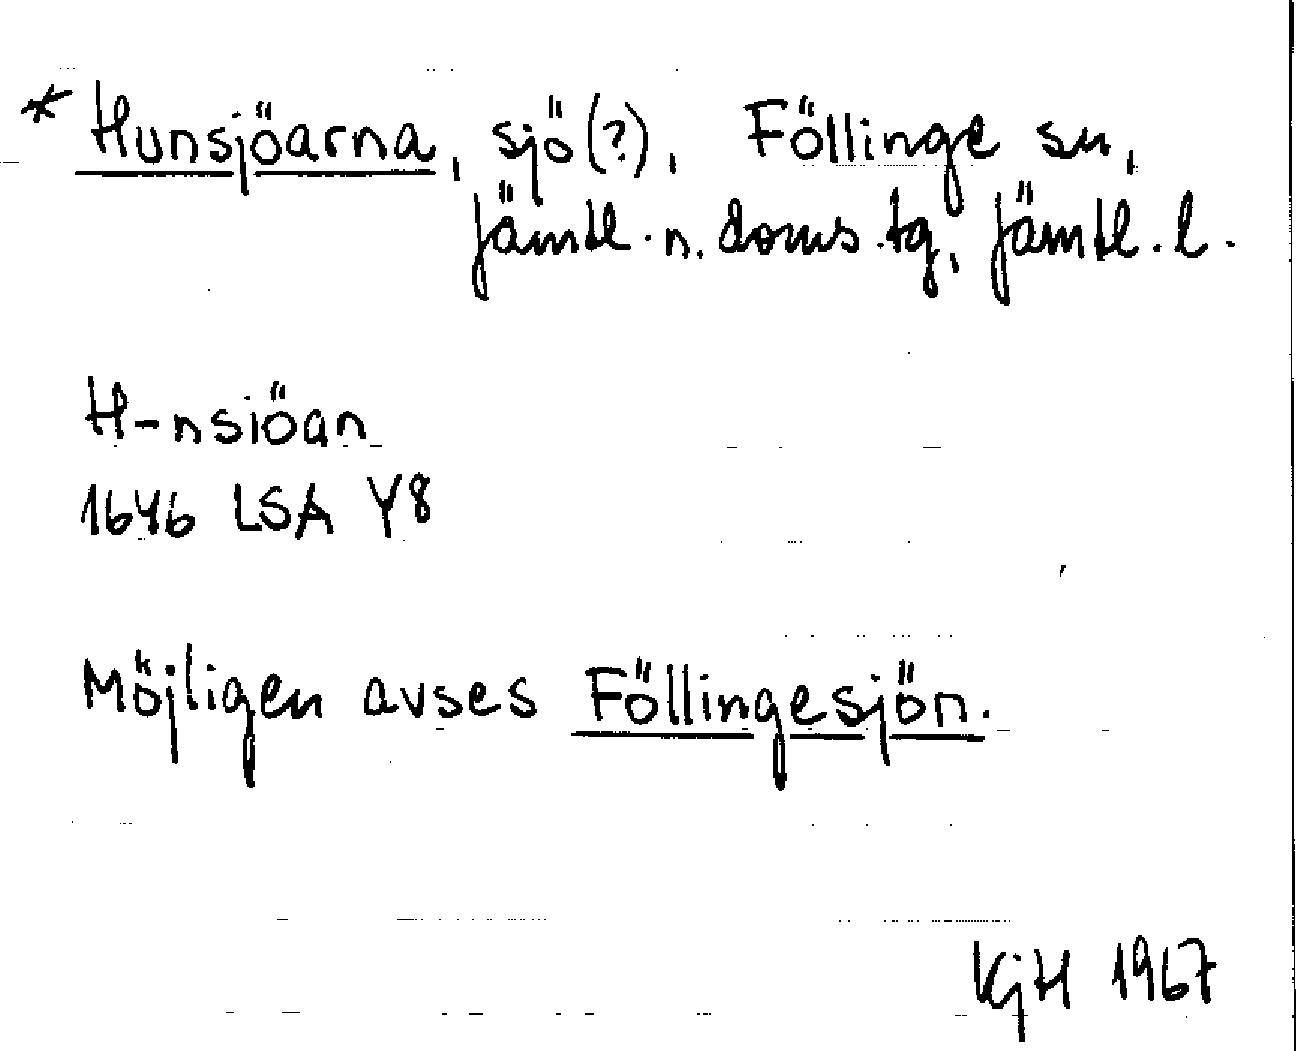 * Hunsjöarna, sjö(?), Föllinge sn,
Jämtl. n. doms.tg, Jämtl. l.
H-nsiöan
1646 LSA Y8
Möjligen avses Föllingesjön.
KjH 1967